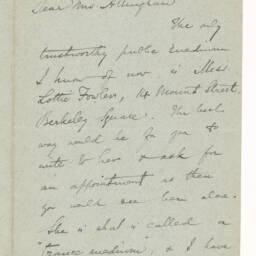 Dear Mrs Allingham
The only
trustworthy public medium
I know of now is Miss
Lottie Fowler, 14 Mount Street,
Berkeley Square. The best
way would be for you to
write to her & ask for
an appointment as then
you would see her alone.
She is what is called a
"Trance medium, & I have